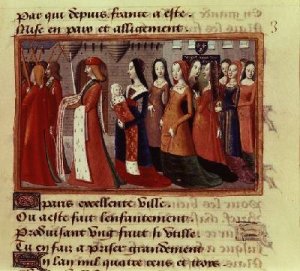 par qui depuis france a este
Mise en paix et alligement
3
Paris excellente ville
Ou a este fait lenfantement
Produisant ung fruit si utille
Tu en fai a priser grandement
En lan mil quatre cens et trois